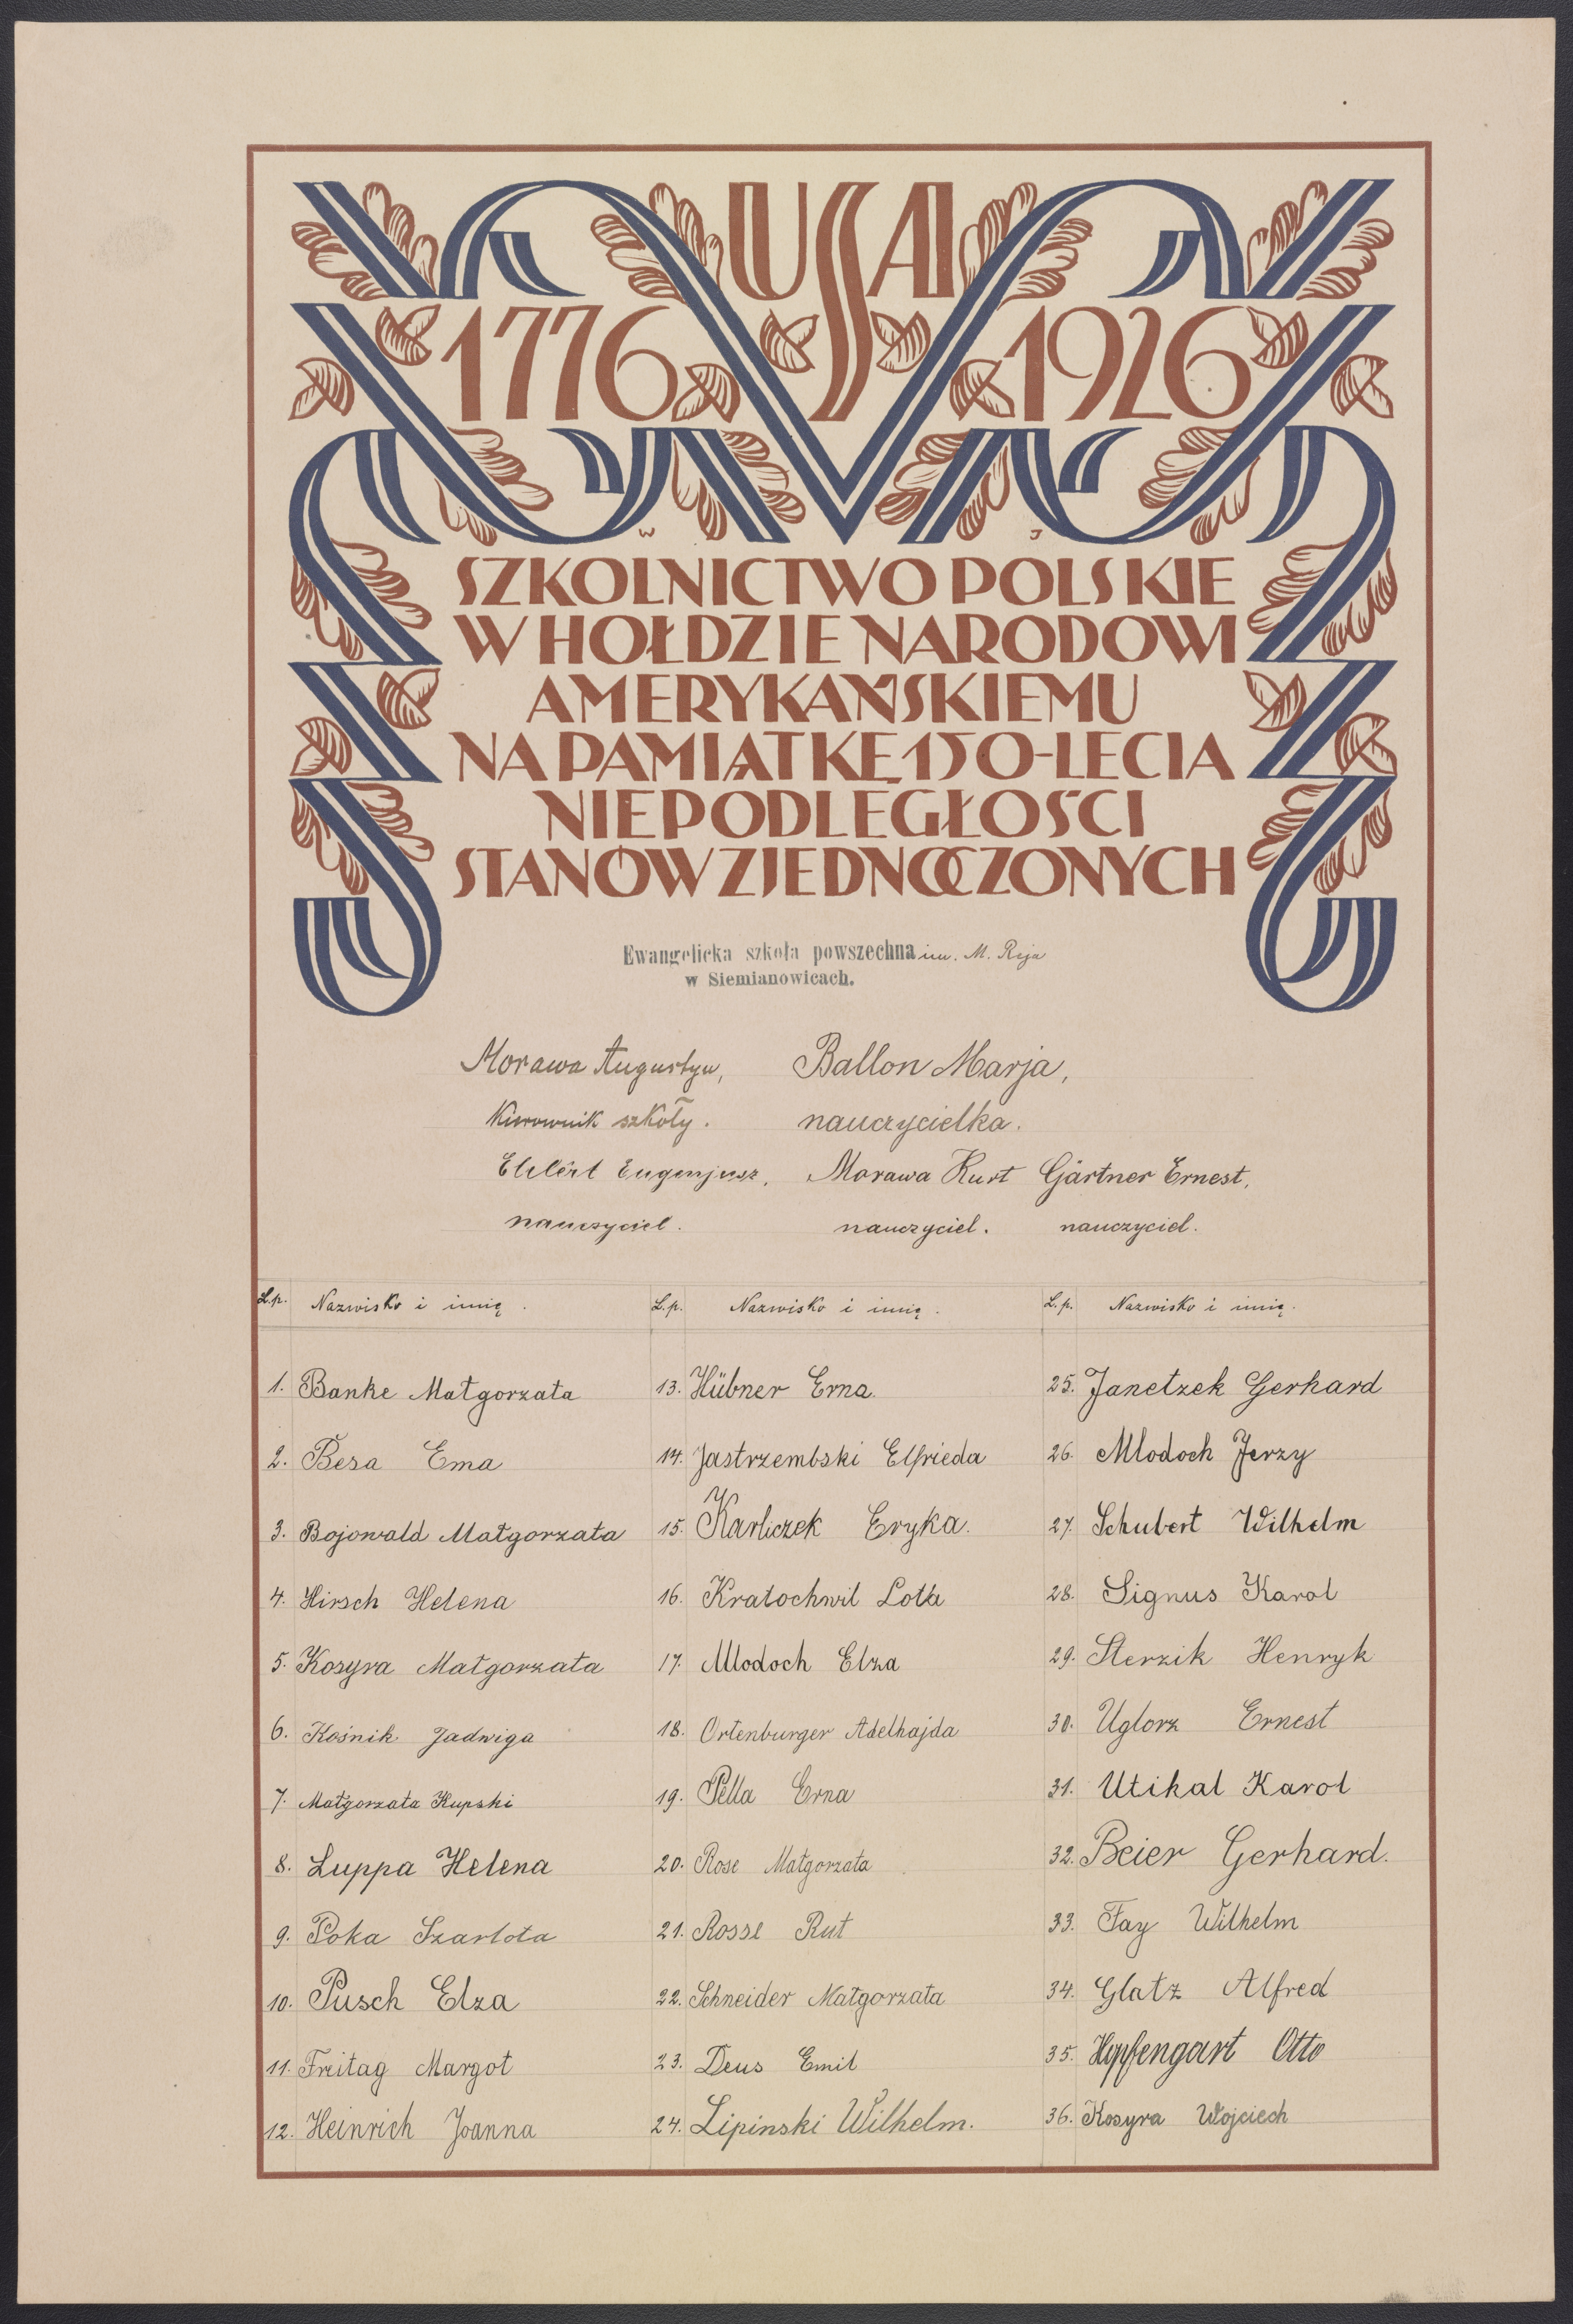 USA
1776 1926
W J
SZKOLNICTWO POLSKIE
W HOŁDZIE NARODOWI
AMERYKAŃSKIEMU
NA PAMIĄTKĘ 150-LECIA
NIEPODLEGŁOŚCI
STANÓW ZJEDNOCZONYCH
Ewangelicka szkoła powszechna im. M. Reja
w Siemianowicach.
Morawa Augustyn,
Kierownik szkoły.
Ballon Marja,
nauczycielka.
Eugenjusz,
nauczyciel.
Morawa Kurt
nauczyciel.
Gärtner Ernest,
nauczyciel.
L.p. Nazwisko i imię.
1. Banke Małgorzata
2. Besa Ema
3. Bojowald Małgorzata
4. Hirsch Helena
5. Kosyra Małgorzata
6. Kośnik Jadwiga
7. Małgorzata Kupski
8. Luppa Helena
9. Poka Szarlota
10. Pusch Elza
11. Freitag Margot
12. Heinrich Joanna
L.p. Nazwisko i imię.
13. Hübner Erna.
14. Jastrzembski Elfrieda
15. Karliczek Eryka.
16. Kratochwil Lotta
17. Mlodoch Elza
18. Ortenburger Adelhajda
19. Pella Erna
20. Rose Małgorzata
21. Rossl Rut
22. Schneider Małgorzata
23. Deus Emil
24. Lipinski Wilhelm.
L.p. Nazwisko i imię.
25. Janetzek Gerhard
26. Mlodoch Jerzy
27. Schubert Wilhelm
28. Signus Karol
29. Sterzik Henryk
30. Uglorz Ernest
31. Utikal Karol
32. Beier Gerhard.
33. Fay Wilhelm
34. Glatz Alfred
35. Hopfengart Otto
36. Kosyra Wojciech